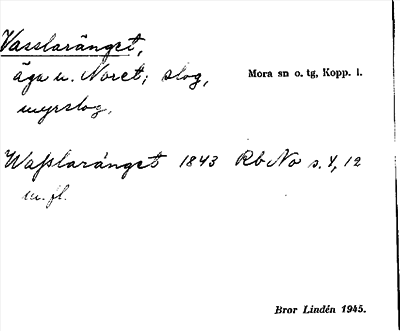 Vasslaränget,
äga u. Noret; slog,
myrslog.
Mora sn o. tg, Kopp. l.
Wasslaränget 1843 Rb No s. 4, 12
m. fl.
Bror Lindén 1945.